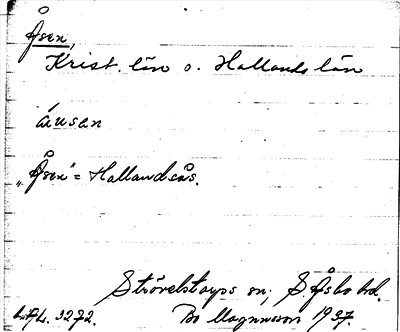 Åsen,
Krist. län o. Hallands län
áusan
"Åsen" = Hallandsås.
Strövelstorps sn, S. Åsbo hd.
L.F.L. 3272. Bo Magnusson 1937